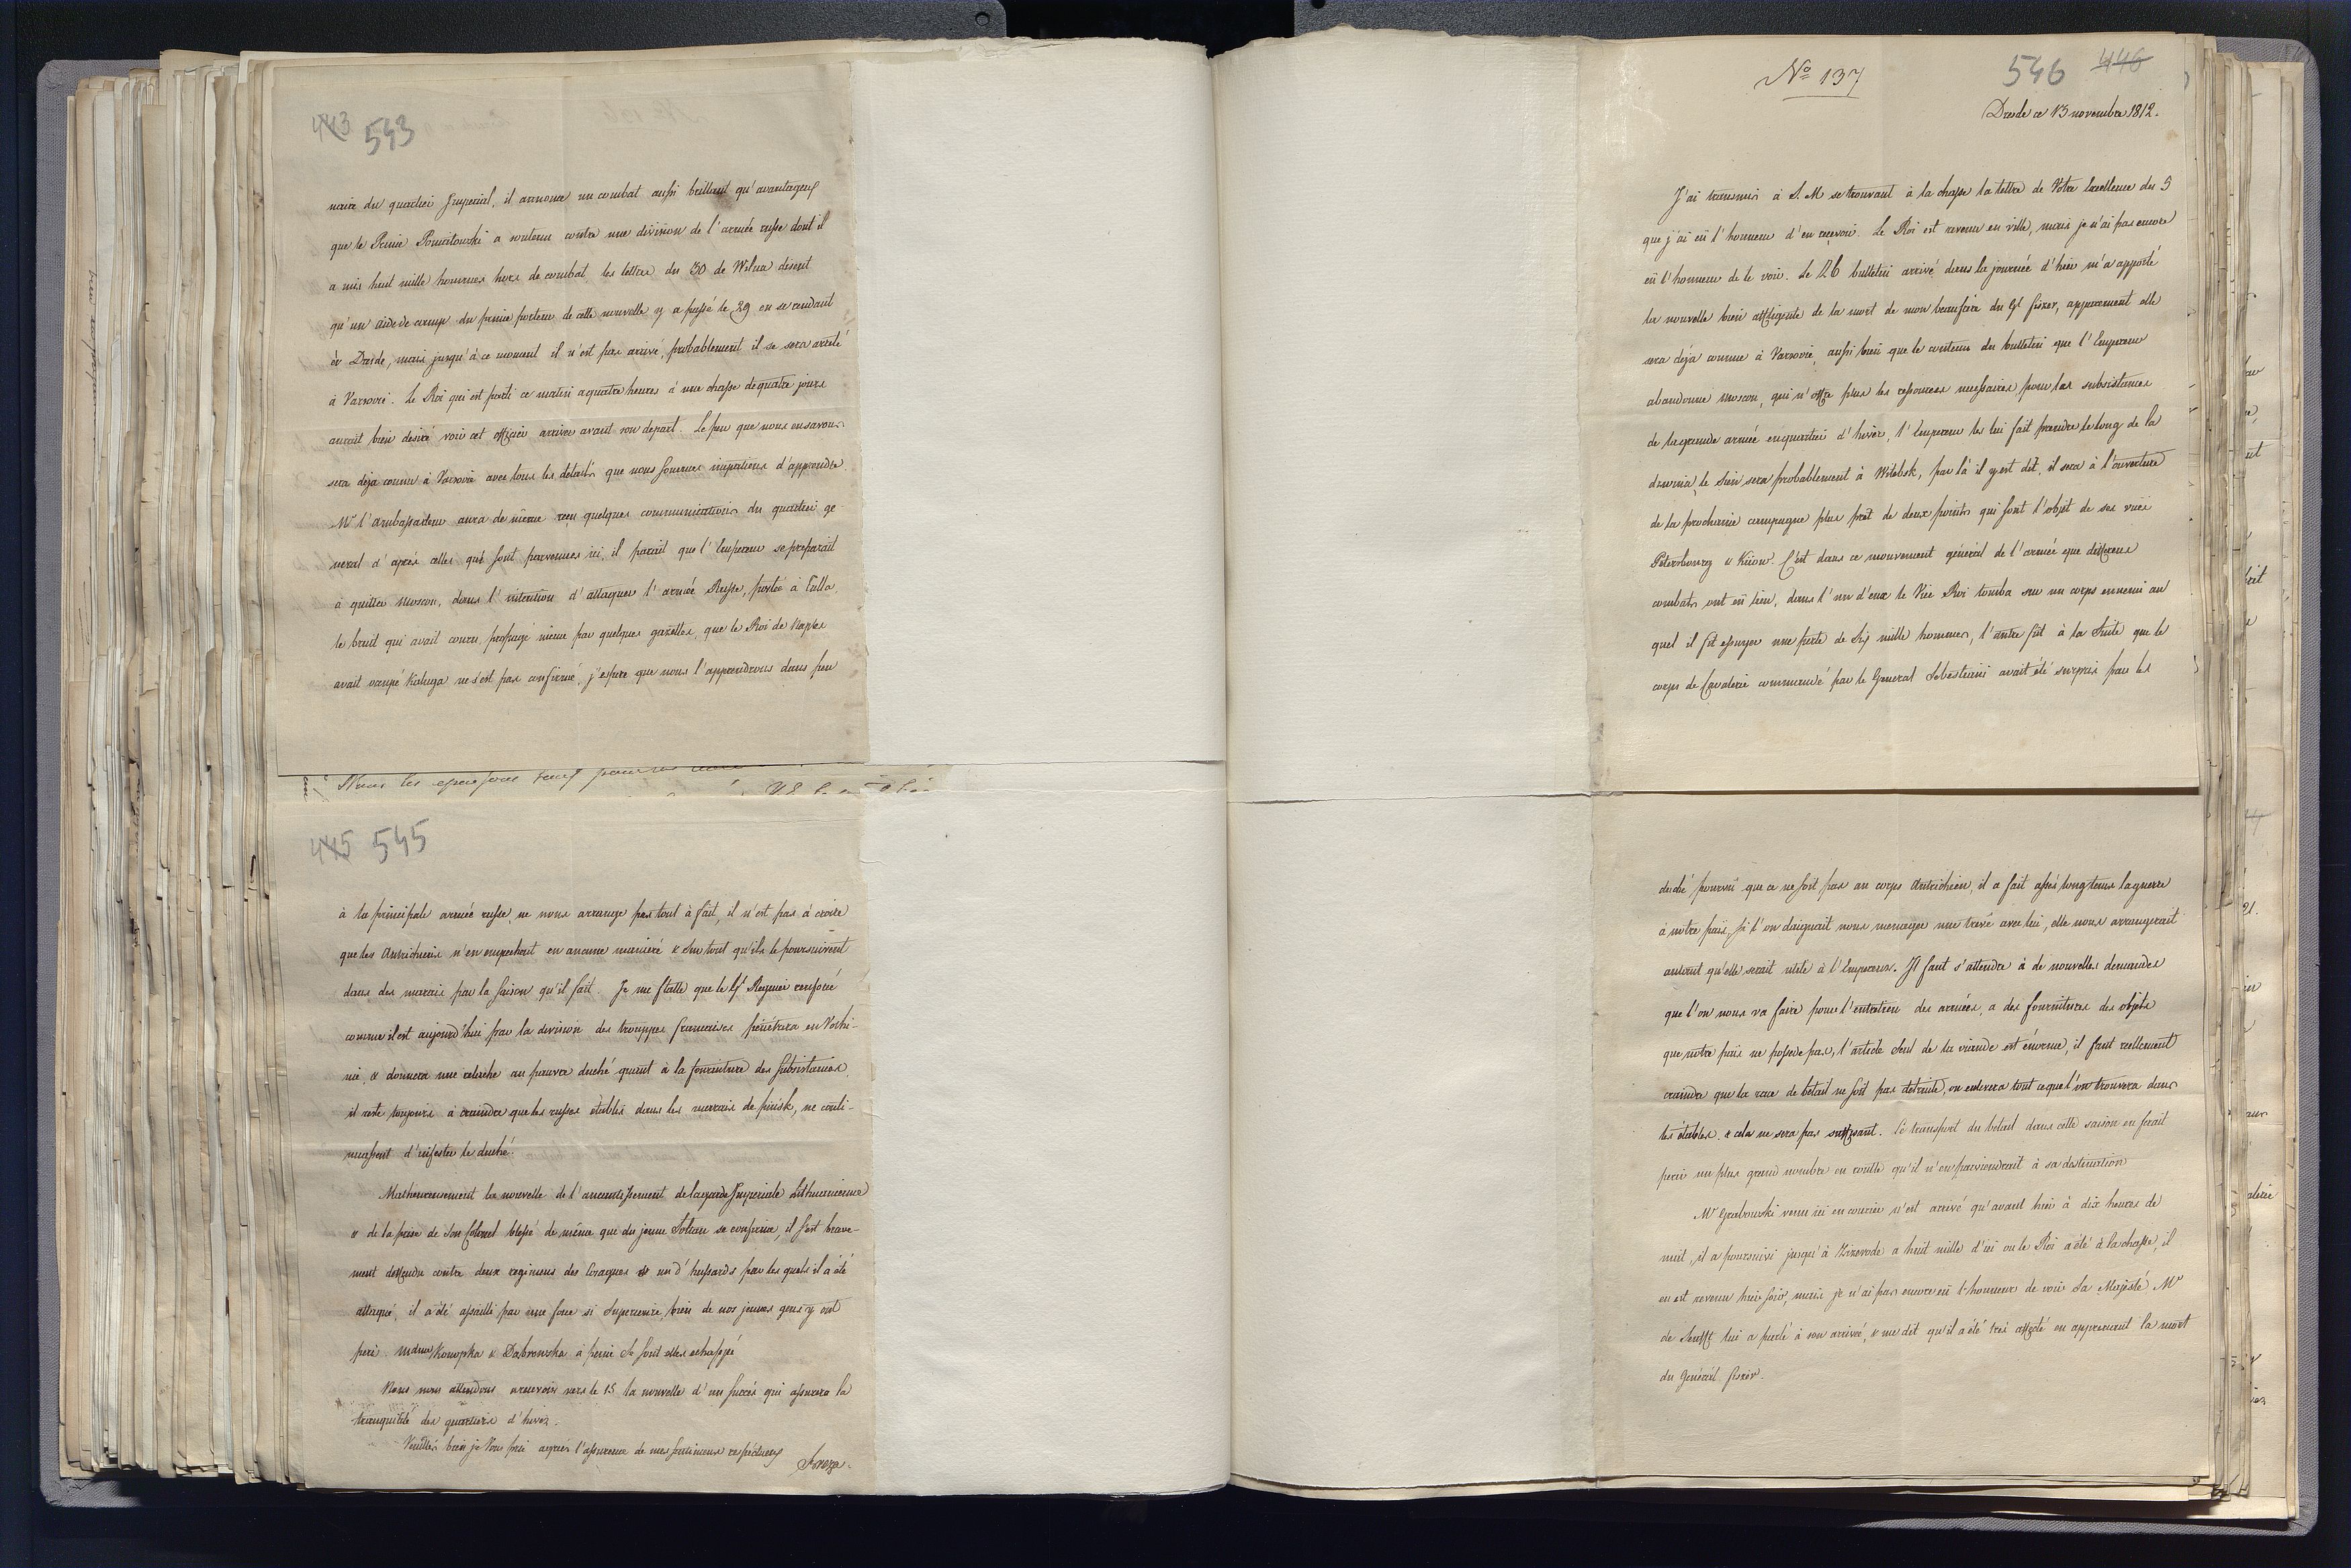 443 543
naire du quartier Imperial, il annonce un combat aussi brillant qu'avantageux
que le Prince Poniatowski a soutenu contre une division de l'armée russe dont il
a mis huit mille hommes hors de combat, les lettres du 30 de Wilna disent
qu'un aide de camp du prince porteur de cette nouvelle y a passé le 29 en se rendant
à Dresde, mais jusqu'à ce moment il n'est pas arrivé, probablement il se sera arreté
à Varsovie. Le Roi qui est parti ce matin a quatre heures à une chasse de quatre jours
aurait bien desiré voir cet officier arriver avant son depart. Le peu que nous en savons
sera deja connu à Varsovie avec tous les détails que nous sommes impatiens d'apprendre.
Mr l'ambassadeur aura de même reçu quelques communications du quartier ge-
neral d'après celles qui sont parvenues ici, il parait que l'Empereur se preparait
à quitter Moscou, dans l'intention d'attaquer l'armée Russe, postée à Tulla,
le bruit qui avait couru, propagé même par quelques gazettes, que le Roi de Naples
avait occupé Kaluga ne s'est pas confirmé, j'espere que nous l'apprendrons dans peu
Nous les
445 545
à la principale armée russe, ne nous arrange pas tout à fait, il n'est pas à croire
que les Autrichiens n'en empechent en aucune maniere & surtout qu'ils le poursuivent
dans des marais par la saison qu'il fait. Je me flatte que le Gl Reynier renforcé
comme il est aujourd'hui par la division des trouppes francaises penétrera en Volhi-
nie, & donnera une relache au pauvre duché quant à la fourniture des subsistances,
il reste toujours à craindre que les russes etablis dans les marais de pinsk, ne conti-
nuassent d'infester le duché.
Malheureusement la nouvelle de l'aneantissement de la garde Imperiale Lithuanienne
& de la prise de son Colonel blessé de même que du jeune Soltan se confirme, il s'est brave-
ment deffendu contre deux regimens des Cosaques & un d'hussards par les quels il a été
attaqué, il a été assailli par une force si superieure, bien de nos jeunes gens y ont
peri. Mdmes Konopka & Dabrowska à peine se sont elles echappé
Nous nous attendons a recevoir vers le 15 la nouvelle d'un succès qui assurera la
tranquilité des quartiers d'hiver.
Veuillés bien je Vous prie agréer l'assurance de mes sentimens respectueux
Breza.
No 137
546 446
Dresde ce 13 novembre 1812.
J'ai transmis à S. M se trouvant à la chasse la lettre de Votre Excellence du 5
que j'ai eü l'honneur d'en reçevoir. Le Roi est revenu en ville, mais je n'ai pas encore
eü l'honneur de le voir. Le 26 bulletin arrivé dans la journée d'hier m'a apporté
la nouvelle bien affligente de la mort de mon beaufrère du Gl fiszer, apparement elle
sera deja connue à Varsovie, aussi bien que le contenu du bulletin que l'Empereur
abandonne Moscou, qui n'offre plus les ressources necessaires pour les subsistances
de la grande armée en quartier d'hiver, l'Empereur les lui fait prendre le long de la
dzwina, le sien sera probablement à Witebsk, par là il y est dit, il sera à l'ouverture
de la prochaine campagne plus prêt de deux points qui font l'objet de ses vües
Pétersbourg & Kiiow. C'est dans ce mouvement géneral de l'armée que differens
combats ont eü lieu, dans l'un d'eux le Vice Roi tomba sur un corps ennemi au
quel il fit essuyer une perte de six mille hommes, l'autre fut à la suite que le
corps de Cavalerie commandé par le General Sebastiani avait été surpris par les
duché pourvû que ce ne soit pas un corps Autrichien, il a fait assés longtems la guerre
à notre païs, si l'on daignait nous menager une treve avec lui, elle nous arrangerait
autant qu'elle serait utile à l'Empereur. Il faut s'attendre à de nouvelles demandes
que l'on nous va faire pour l'entretien des armées, a des fournitures des objets
que notre païs ne possede pas, l'article seul de la viande est énorme, il faut reellement
craindre que la race de bétail ne soit pas detruite, on enlevera tout ce que l'on trouvera dans
les étables & cela ne sera pas suffisant. Le transport du betail dans cette saison en ferait
perir un plus grand nombre en routte qu'il n'en parviendrait à sa destination
Mr Grabowski venu ici en courier n'est arrivé qu'avant hier à dix heures de
nuit, il a poursuivi jusqu'à a huit mille d'ici ou le Roi a été à la chasse, il
en est revenu hier soir, mais je n'ai pas encore eü l'honneur de voir Sa Majesté Mr
de Senfft lui a parlé à son arrivée, & me dit qu'il a été très affecté en apprenant la mort
du Général fiszer.